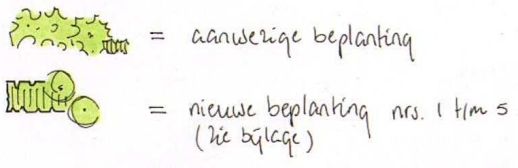 = aanwezige beplanting
= nieuwe beplanting nrs. 1 t/m 5
(zie bijlage)